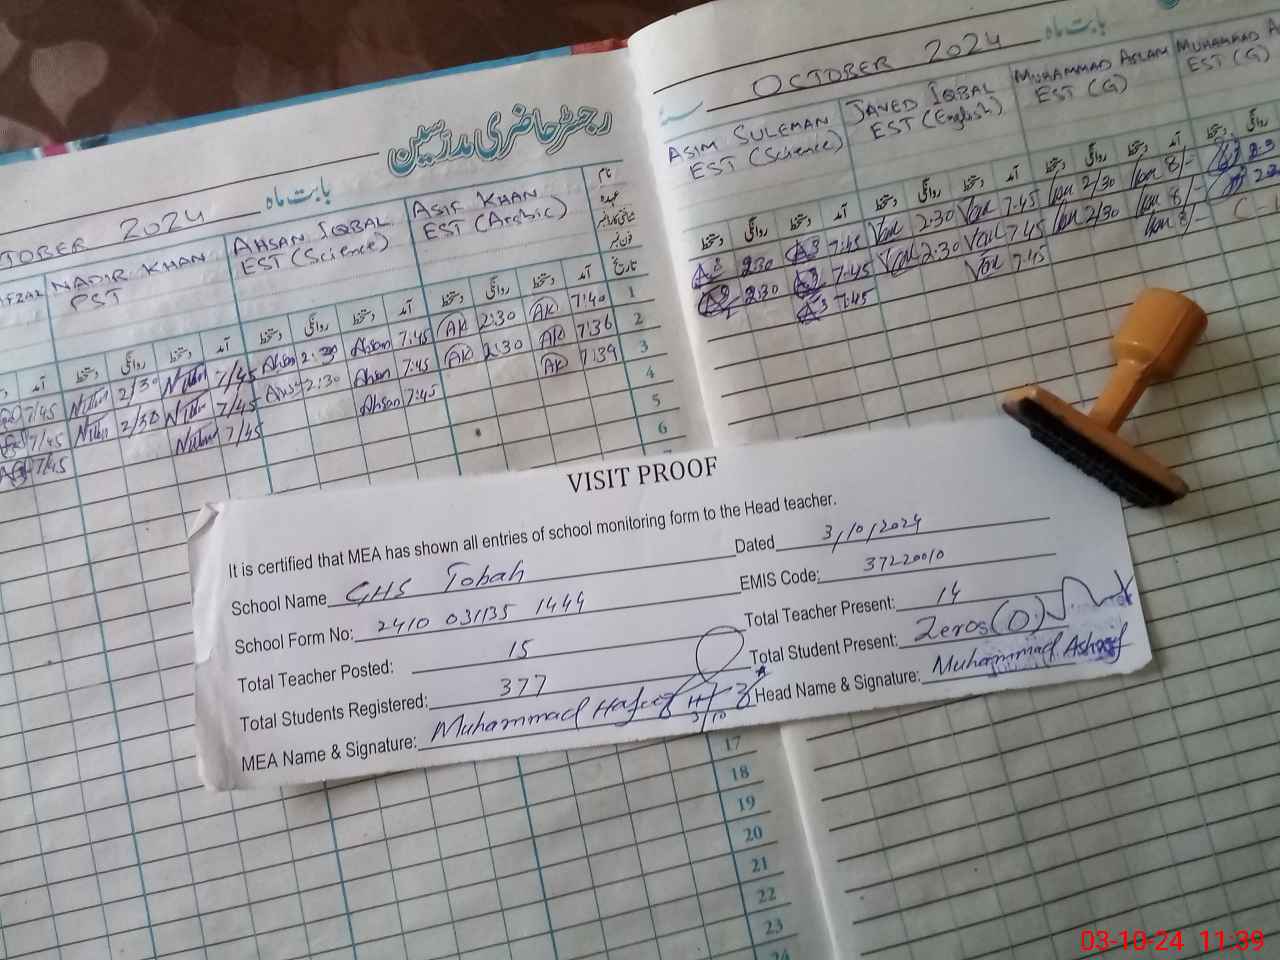 رجسٹر حاضری مدرسین
بابت ماہ
OCTOBER 2024
بابت ماہ
سنہ
2024
NADIR KHAN
PST
AHSAN IQBAL
EST (Science)
ASIF KHAN
EST (Arabic)
ASIM SULEMAN
EST (Science)
JAVED IQBAL
EST (English)
MUHAMMAD ASLAM
EST (G)
MUHAMMAD A
EST (G)
نام
عہدہ
تاریخ
آمد دستخط روانگی دستخط
7/45 2/30 7/45 Ahsan 7:45 AK 2:30 AK 7:40 1
7/45 2/30 7/45 2:30 Ahsan 7:45 AK 2:30 AK 7:36 2
7/45 7/45 Ahsan 7:45 AK 7:39 3
4
5
6
2:30 7:45 2:30 7:45 2/30 8/-
2:30 7:45 2:30 7:45 2/30 8/-
7:45 7:45 8/-
VISIT PROOF
It is certified that MEA has shown all entries of school monitoring form to the Head teacher.
School Name GHS Tobah Dated 3/10/2024
School Form No: 2410 031135 1444 EMIS Code: 37220010
Total Teacher Posted: 15 Total Teacher Present: 14
Total Students Registered: 377 Total Student Present: Zeros (0)
MEA Name & Signature: Muhammad Hafeez Head Name & Signature: Muhammad Ashraf
3/10
17
18
19
20
21
22
23
24
03-10-24 11:39